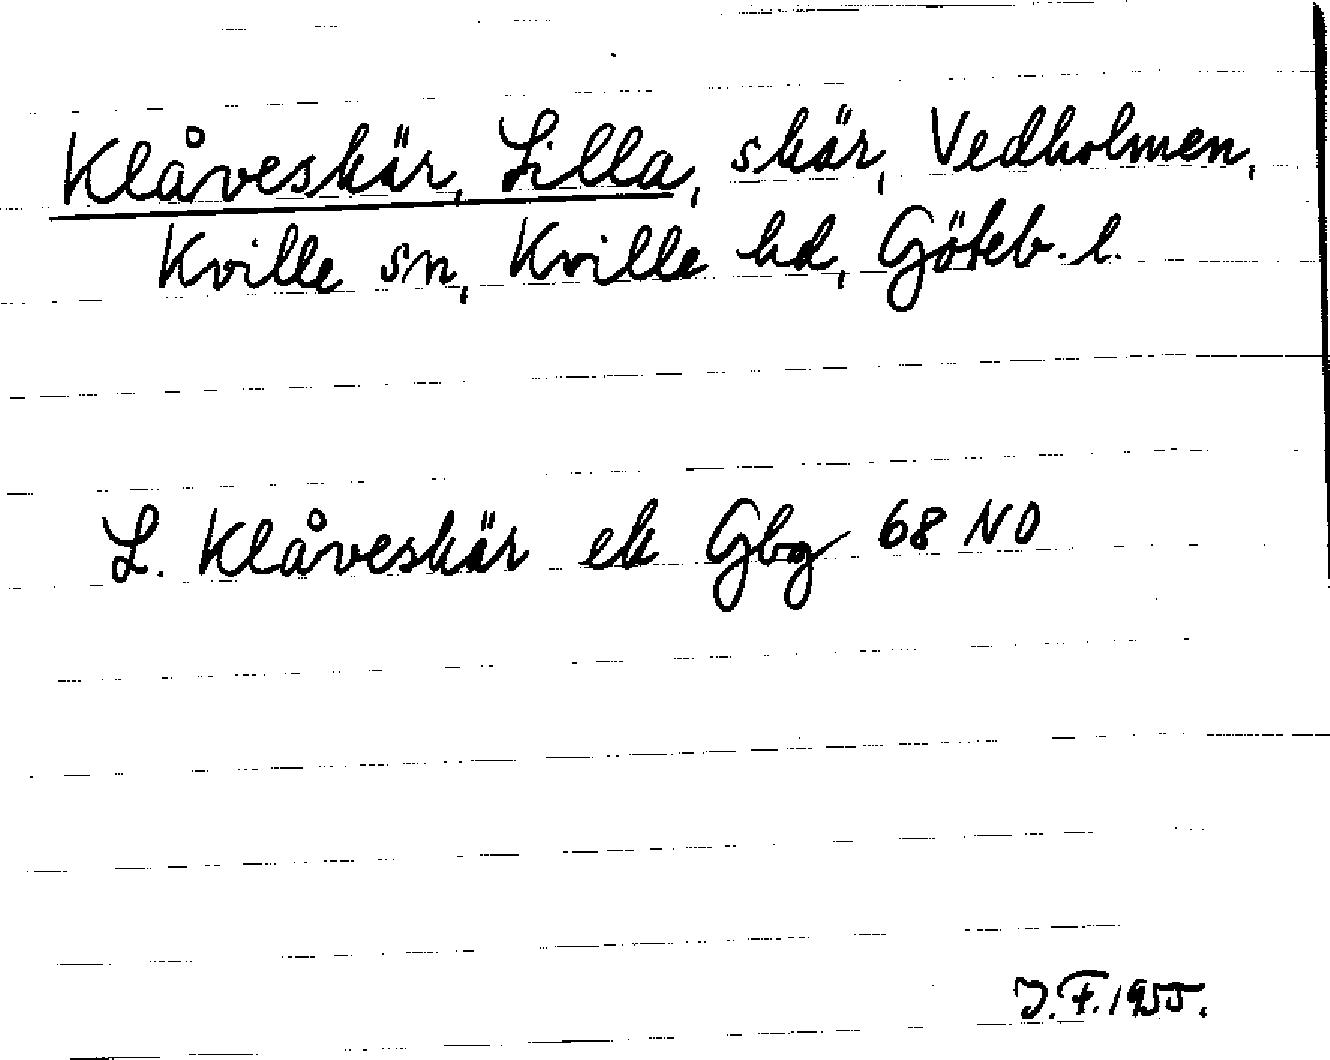 Klåveskär, Lilla, skär, Vedholmen,
Kville sn, Kville hd, Göteb. l.
L. Klåveskär ek Gbg 68 NO
J.F. 1955.